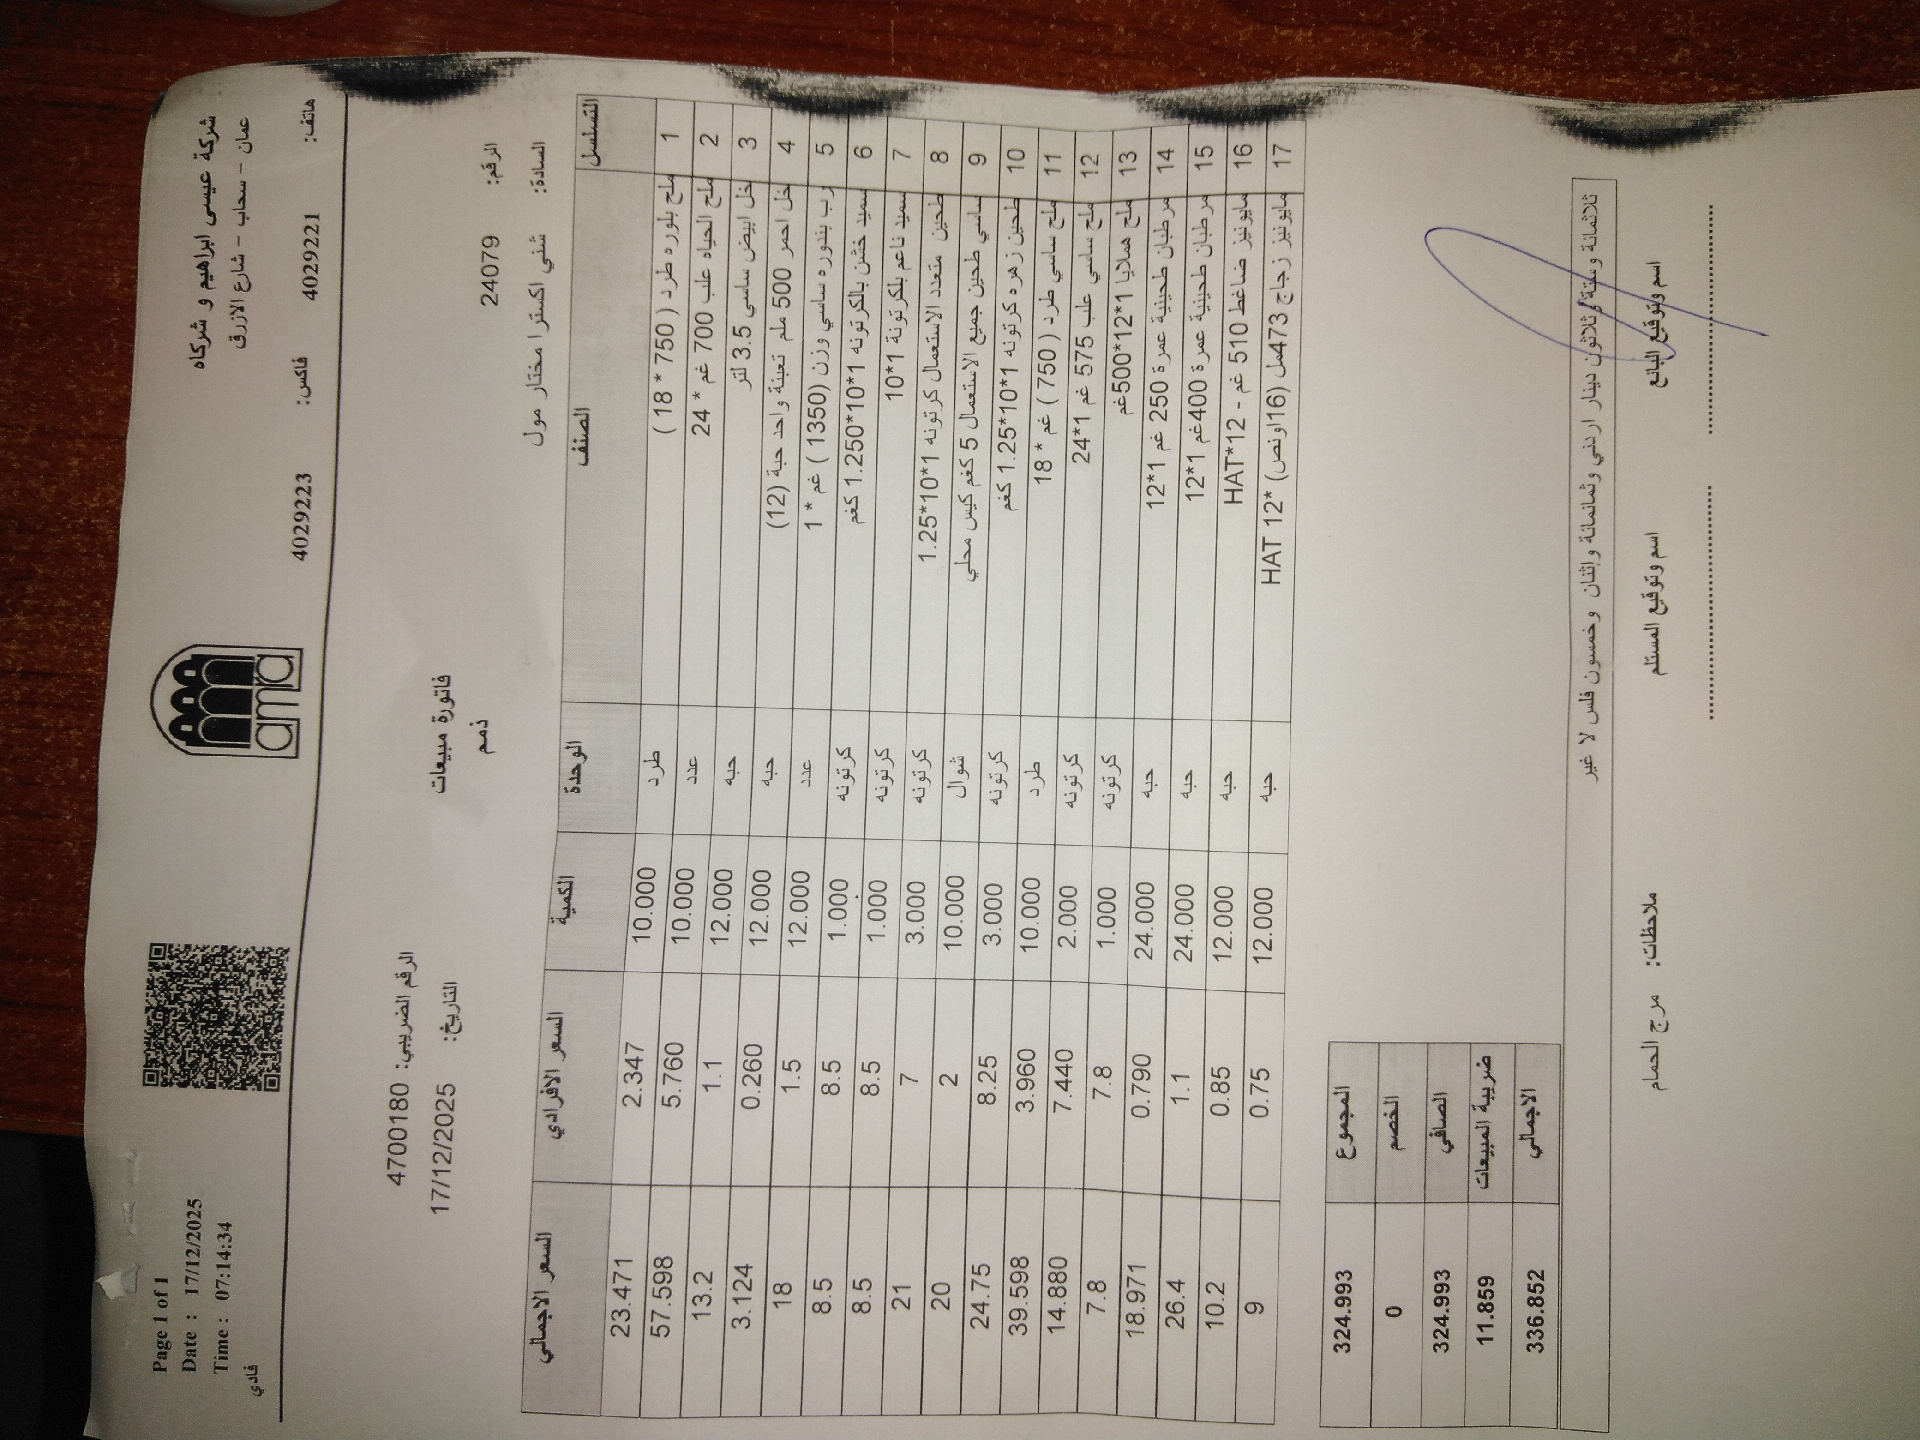 شركة عيسى ابراهيم و شركاه
عمان - سحاب - شارع الازرق
هاتف: 4029221 فاكس: 4029223
amra
Page 1 of 1
Date : 17/12/2025
Time : 07:14:34
فادي
الرقم الضريبي: 4700180
فاتورة مبيعات
التاريخ: 17/12/2025
ذمم
الرقم: 24079
السادة: شني اكسترا مختار مول
التسلسل الصنف الوحدة الكمية السعر الافرادي السعر الاجمالي
1 ملح بلوره طرد ( 750 * 18 ) طرد 10.000 2.347 23.471
2 ملح الحياه علب 700 غم * 24 عدد 10.000 5.760 57.598
3 خل ابيض ساسي 3.5 لتر حبه 12.000 1.1 13.2
4 خل احمر 500 ملم تعبئة واحد حبة (12) حبه 12.000 0.260 3.124
5 رب بندوره ساسي وزن (1350 ) غم * 1 عدد 12.000 1.5 18
6 سميد خشن بالكرتونه 1*10*1.250 كغم كرتونه 1.000 8.5 8.5
7 سميد ناعم بلكرتونة 1*10 كرتونه 1.000 8.5 8.5
8 طحين متعدد الاستعمال كرتونه 1*10*1.25 كرتونه 3.000 7 21
9 ساسي طحين جميع الاستعمال 5 كغم كيس محلي شوال 10.000 2 20
10 طحين زهره كرتونه 1*10*1.25 كغم كرتونه 3.000 8.25 24.75
11 ملح ساسي طرد ( 750 ) غم * 18 طرد 10.000 3.960 39.598
12 ملح ساسي علب 575 غم 1*24 كرتونه 2.000 7.440 14.880
13 ملح هملايا 1*12*500غم كرتونه 1.000 7.8 7.8
14 مرطبان طحينية عمرة 250 غم 1*12 حبه 24.000 0.790 18.971
15 مرطبان طحينية عمرة 400غم 1*12 حبه 24.000 1.1 26.4
16 مايونيز ضاغط 510 غم - 12*HAT حبه 12.000 0.85 10.2
17 مايونيز زجاج 473مل (16اونص) *12 HAT حبه 12.000 0.75 9
المجموع 324.993
الخصم 0
الصافي 324.993
ضريبة المبيعات 11.859
الاجمالي 336.852
ثلاثمائة وستة وثلاثون دينار اردني وثمانمائة وإثنان وخمسون فلس لا غير
اسم وتوقيع البائع اسم وتوقيع المستلم ملاحظات: مرج الحمام